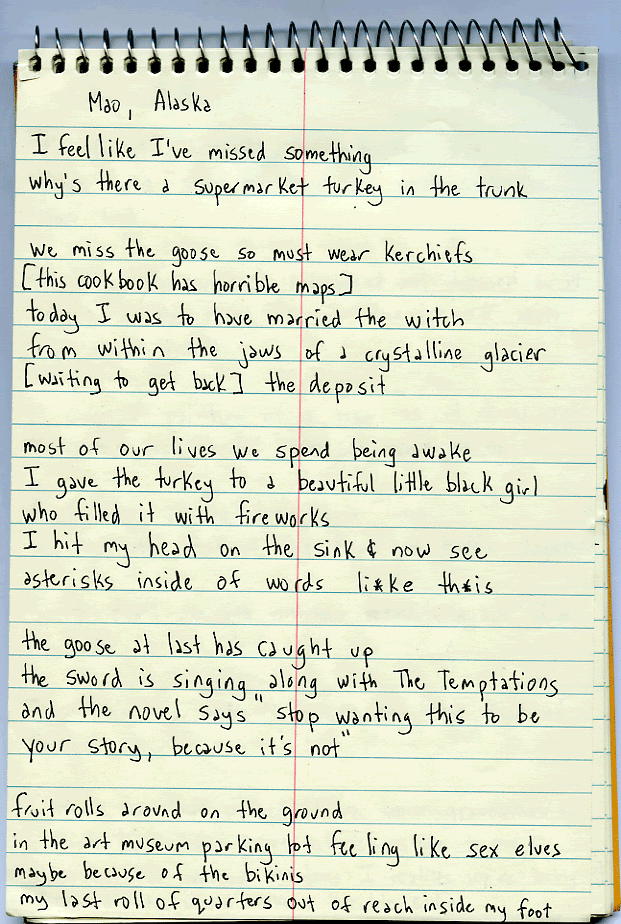 Mao, Alaska
I feel like I've missed something
why's there a supermarket turkey in the trunk
we miss the goose so must wear kerchiefs
[this cookbook has horrible maps]
today I was to have married the witch
from within the jaws of a crystalline glacier
[waiting to get back] the deposit
most of our lives we spend being awake
I gave the turkey to a beautiful little black girl
who filled it with fireworks
I hit my head on the sink & now see
asterisks inside of words li*ke th*is
the goose at last has caught up
the sword is singing along with The Temptations
and the novel says "stop wanting this to be
your story, because it's not"
fruit rolls around on the ground
in the art museum parking lot feeling like sex elves
maybe because of the bikinis
my last roll of quarters out of reach inside my foot